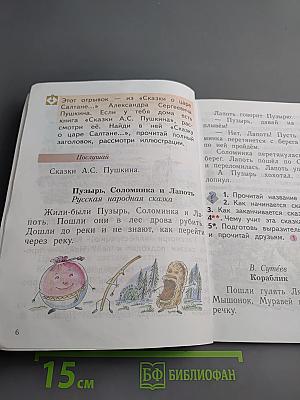 Этот отрывок — из «Сказки о царе
Салтане...» Александра Сергеевича
Пушкина. Если у тебя дома есть
книга «Сказки А.С. Пушкина», рас-
смотри её. Найди в ней «Сказку
о царе Салтане...», прочитай полный
заголовок, рассмотри иллюстрации.
Послушай
Сказки А.С. Пушкина.
Пузырь, Соломинка и Лапоть
Русская народная сказка
Жили-были Пузырь, Соломинка и Ла-
поть. Пошли они в лес дрова рубить.
Дошли до реки и не знают, как перейти
через реку.
6
Лапоть говорит Пузырю:
— Пузырь, давай на
— Нет, Лапоть! Пусть
перетянется с берега
по ней пойдём.
Соломинка перетянулась
берег. Лапоть пошёл по
и переломилась. Лапоть упал
А Пузырь хохотал,
лопнул.
1. Прочитай название
2. Как начинается
3. Как заканчивается
4*. Чему учит эта
5*. Подготовь выразительное
и прочитай друзьям.
В. Сутеев
Кораблик
Пошли гулять
Мышонок, Муравей
речку.
15 см
БФ БИБЛИОФАН